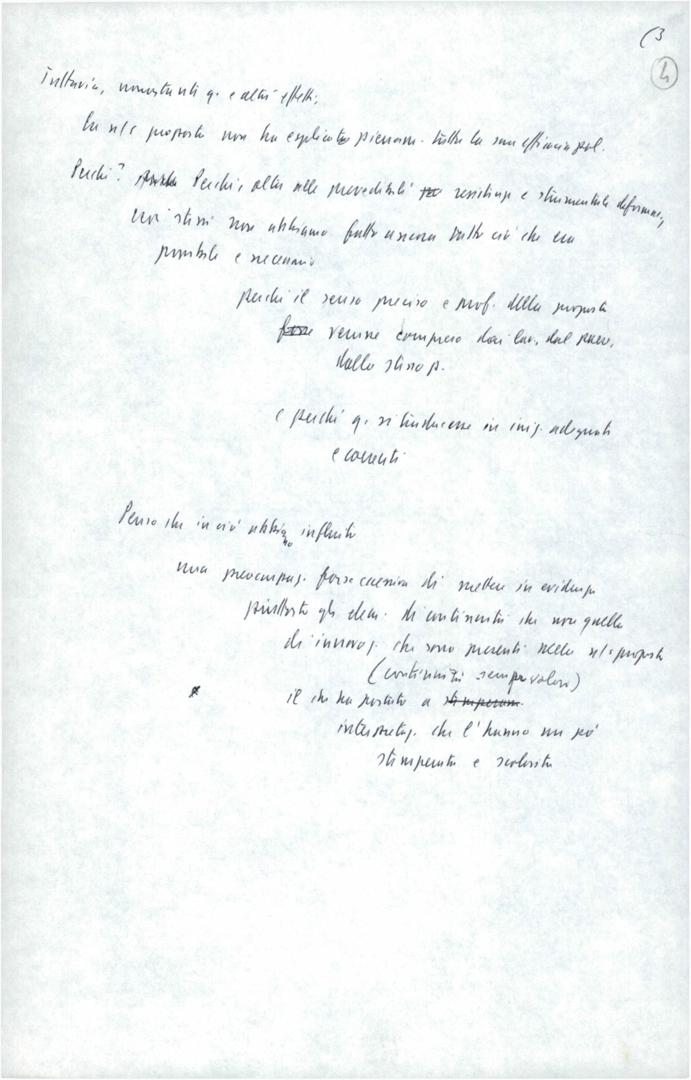 (3
4
Tuttavia, nonostanti q. e altri effetti,
la n/s proposta non ha esplicato pienam. tutta la sua efficacia pol.
Perché? Perché, oltre alle prevedibili resistenze e strumentali deformaz.,
noi stessi non abbiamo fatto ancora tutto ciò che era
possibile e necessario
perché il senso preciso e prof. della proposta
forse venisse compreso dai lav., dal paese,
dallo stesso p.
e perché q. si traducesse in iniz. adeguate
e coerenti
Penso che in ciò abbiano influito
una preoccupaz. forse eccessiva di mettere in evidenza
piuttosto gli elem. di continuità che non quello
di innovaz. che sono presenti nella n/s proposta
(continuità sempre valore)
il che ha portato a stemperam.
interpretaz. che l'hanno un po'
stemperata e scolorita